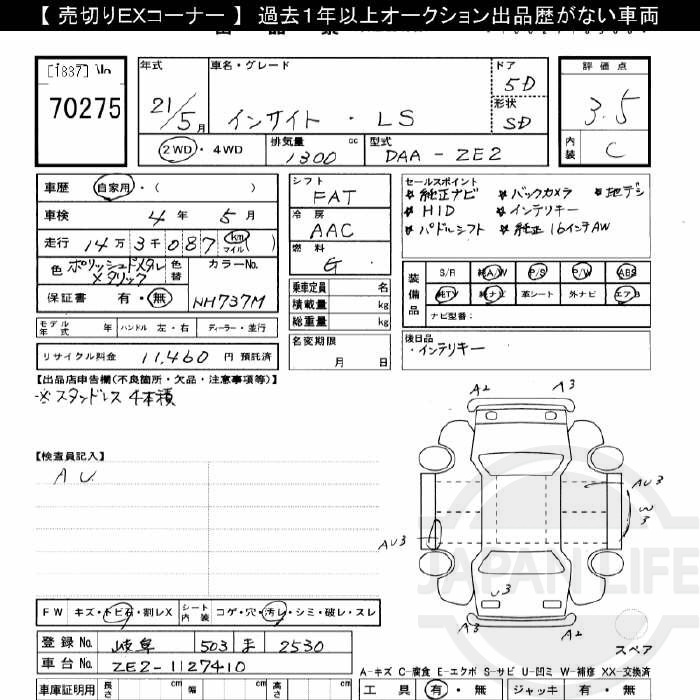 【 売切りEXコーナー 】 過去1年以上オークション出品歴がない車両
70275
年式
21/5月
車名・グレード
インサイト ・ LS
ドア
5D
形状
SD
評価点
3.5
内装
C
2WD ・ 4WD
排気量
1300 cc
型式
DAA - ZE2
車歴
自家用 ・( )
車検
4 年 5 月
走行
14 万 3 千 087 km マイル ( )
色
ポリッシュドメタルメタリック
色替
カラーNo.
NH737M
保証書
有・無
モデル年式 年 ハンドル 左・右 ディーラー・並行
リサイクル料金 11,460 円 預託済
シフト
FAT
冷房
AAC
燃料
G
乗車定員 名
積載量 kg
総重量 kg
名変期限
月 日
セールスポイント
純正ナビ
バックカメラ
地デジ
HID
インテリキー
パドルシフト
純正16インチAW
装備品
S/R 純A/W P/S P/W ABS
純TV 純ナビ 革シート 外ナビ エアB
ナビ型番:
後日品
・インテリキー
【出品店申告欄(不良箇所・欠品・注意事項等)】
※スタッドレス 4本積
【検査員記入】
AU
A2
A3
AU3
W3
AU3
U3
A3
A2
スペア
FW キズ・トビ石・割レX シート内装 コゲ・穴・汚レ・シミ・破レ・スレ
登録No. 岐阜 503 す 2530
車台No. ZE2-1127410
A-キズ C-腐食 E-エクボ S-サビ U-凹ミ W-補修 XX-交換済
車庫証明用 長さ cm 幅 cm 高さ cm
工具 有・無 ジャッキ 有・無
JAPAN LIFE